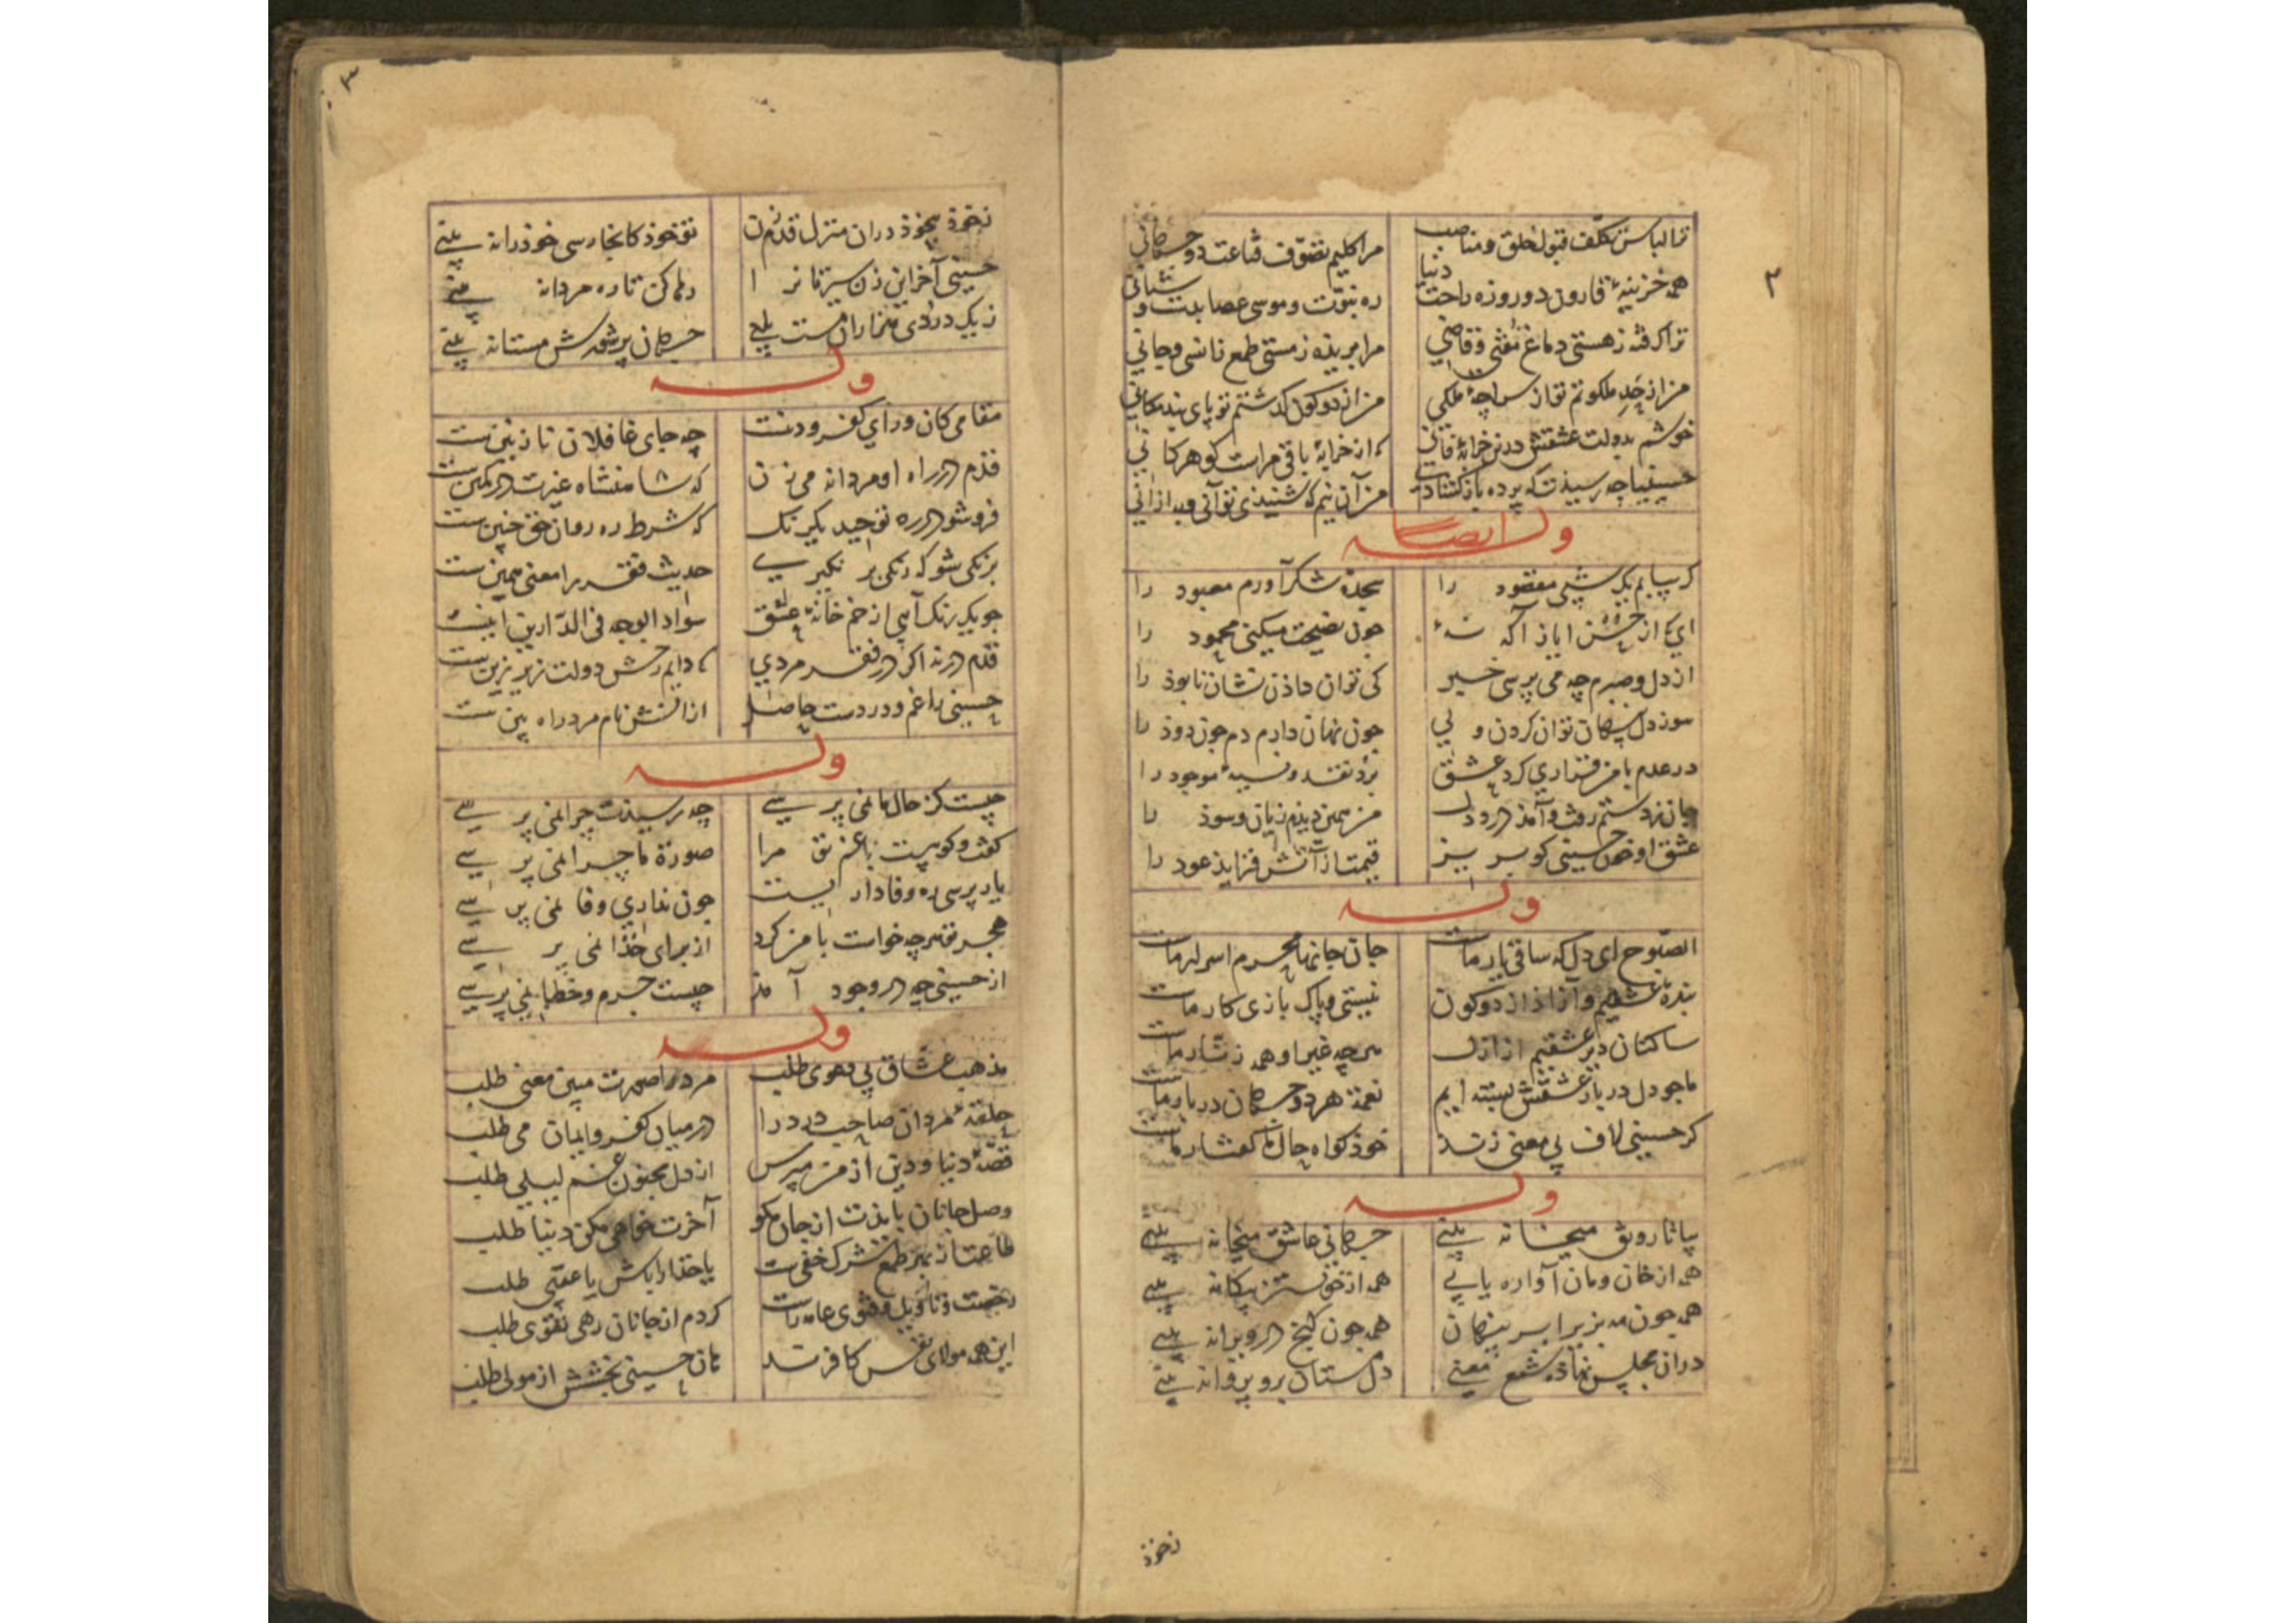 ۲
ترا لباس تکلّف قبول خلق و مناصب مرا کلیم تصوّف قناعت دو جهانی
همه خزینهٔ قارون دو روزه راحت دنیا ره نبوّت و موسی عصا بدست و شبانی
ترا گرفته ز هستی دماغ مفتی و قاضی مرا بریده ز مستی طمع ز انسی و جانی
من از ملکوتم تو از ملکی من از دو کون گذشتم تو پای بند مکانی
خوشم بدولت عشقش درین خرابهٔ فانی که از خرابهٔ باقی مراست گوهر کانی
حسینیا چه رسیدت که پرده باز گشادی من آن نیم که شنیذی تو آنی و به از آنی
وله ایضا
کر بیابم یک شبی مقصود را سجدهٔ شکر آورم معبود را
ای که از حسن ایاز آکه نهٔ جون نصیحت میکنی محمود را
از دل و صبرم چه می پرسی خبر کی توان داذن نشان نابوذ را
سوز دل پنهان توان کردن ولی جون نهان دارم دم جون دوذ را
در عدم با من قراری کرد عشق برد نقد و نسیهٔ موجود را
جان ز دستم رفت و آمذ درد دل من همین دیذم زیان و سوذ را
عشق او خون حسینی کو بریز قیمت از آتش فزایذ عود را
وله
الصبوح ای دل که ساقی یار ماست جان جانها محرم اسرار ماست
بنده عشقیم و آزاذ از دو کون نیستی و پاک بازی کار ماست
ساکنان دیر عشقیم از ازل هر چه غیر او همه زنّار ماست
ما جو دل در بار عشقش بسته ایم نعمت هر دو جهان در بار ماست
کر حسینی لاف بی معنی زند خوذ کواه حال ما کفتار ماست
وله
بیا تا رونق میخانه بینی جهانی عاشق میخانه بینی
همه از خان و مان آواره یابی همه از خویشتن بیکانه بینی
همه جون مه بزیر ابر پنهان همه جون کنج در ویرانه بینی
در آن مجلس نهاذه شمع معنی دل مستان برو پروانه بینی
نخوذ
۳
نخوذ بیخوذ در آن منزل قدم زن تو خوذ کانجا رسی خوذ را نه بینی
حسینی آخر این زن سیرتان را رها کن تا ره مردانه بینی
ز یک دردی خماران مست یابی جهان پر شورش مستانه بینی
وله
مقامی کان ورای کفر و دینست چه جای غافلان نازنین ست
قدم در راه او مردانه می زن که شاهنشاه غیرت در کمین ست
فرو شو در ره توحید یکرنک که شرط ره روان حق جنین ست
برنکی شو که رنکی بر نکیری حدیث فقر را معنی همین ست
جو یک رنک آمی از خم خانهٔ عشق سواد الوجه فی الدّارین اینست
قدم در نه اکر در فقر مردی که دایم رخش دولت زیر زین ست
حسینی را غم و دردست حاصل از آنش نام مرد راه بین ست
وله
چیست کز حال ما نمی پرسی چه رسیذت چرا نمی پرسی
کفت و کوییست با غم تو مرا صورت ماجرا نمی پرسی
یار پرسی ره وفاداریست جون نداری وفا نمی پرسی
هجر تو هر چه خواست با من کرد از برای خذا نمی پرسی
از حسینی چه در وجود آمذ چیست جرم و خطا نمی پرسی
وله
مذهب عشاق بی دعوی طلب مرد را صورت مبین معنی طلب
حلقهٔ مردان صاحب درد را در میان کفر و ایمان می طلب
قصّهٔ دنیا و دین از من مپرس از دل مجنون غم لیلی طلب
وصل جانان بایذت از جان مکو آخرت خواهی مکن دنیا طلب
طاعت از بهر طمع شرک خفی ست یا خذا را باش یا عقبی طلب
رخصت و تاویل و فتوی عامه راست کردم از جانان رهی تقوی طلب
این همه مولای نفس کافرند هان حسینی بخشش از مولی طلب